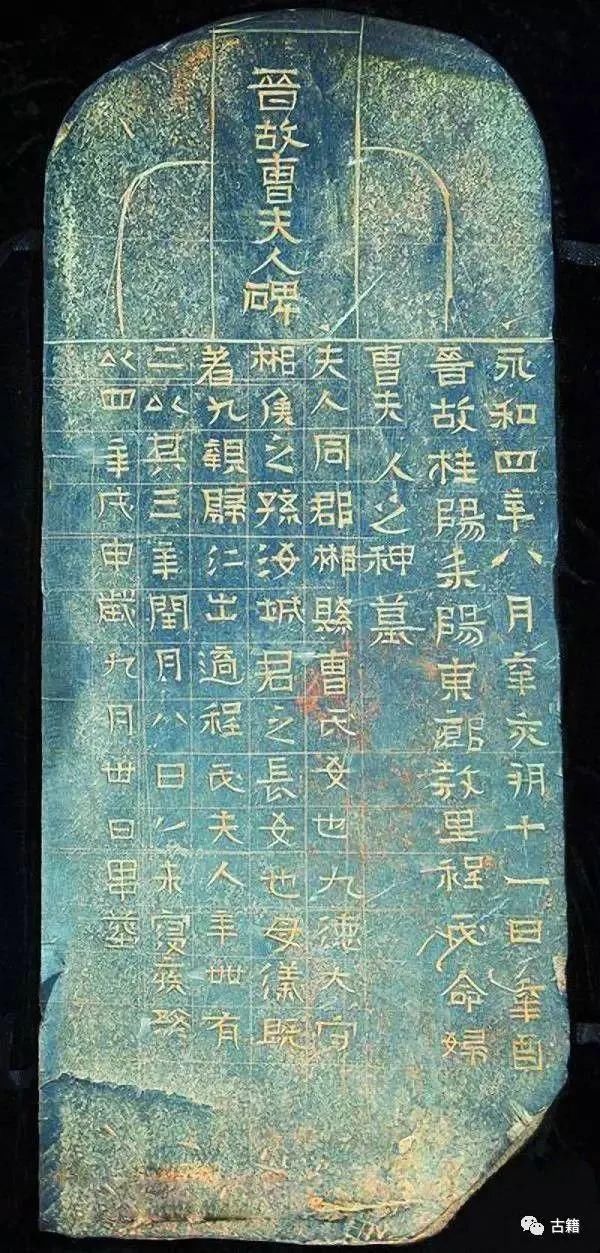 晉故曹夫人碑
永和四年八月辛亥朔十一日辛酉
晉故桂陽耒陽東里程氏命婦
曹夫人之神墓
夫人同郡郴縣曹氏女也九德大守
郴侯之孫海城君之長女也母儀既
著九親歸仁出適程氏夫人年卅有
二以其三年閏月八日以來寑疾
以四年戊申歲九月卅日畢葬
古籍